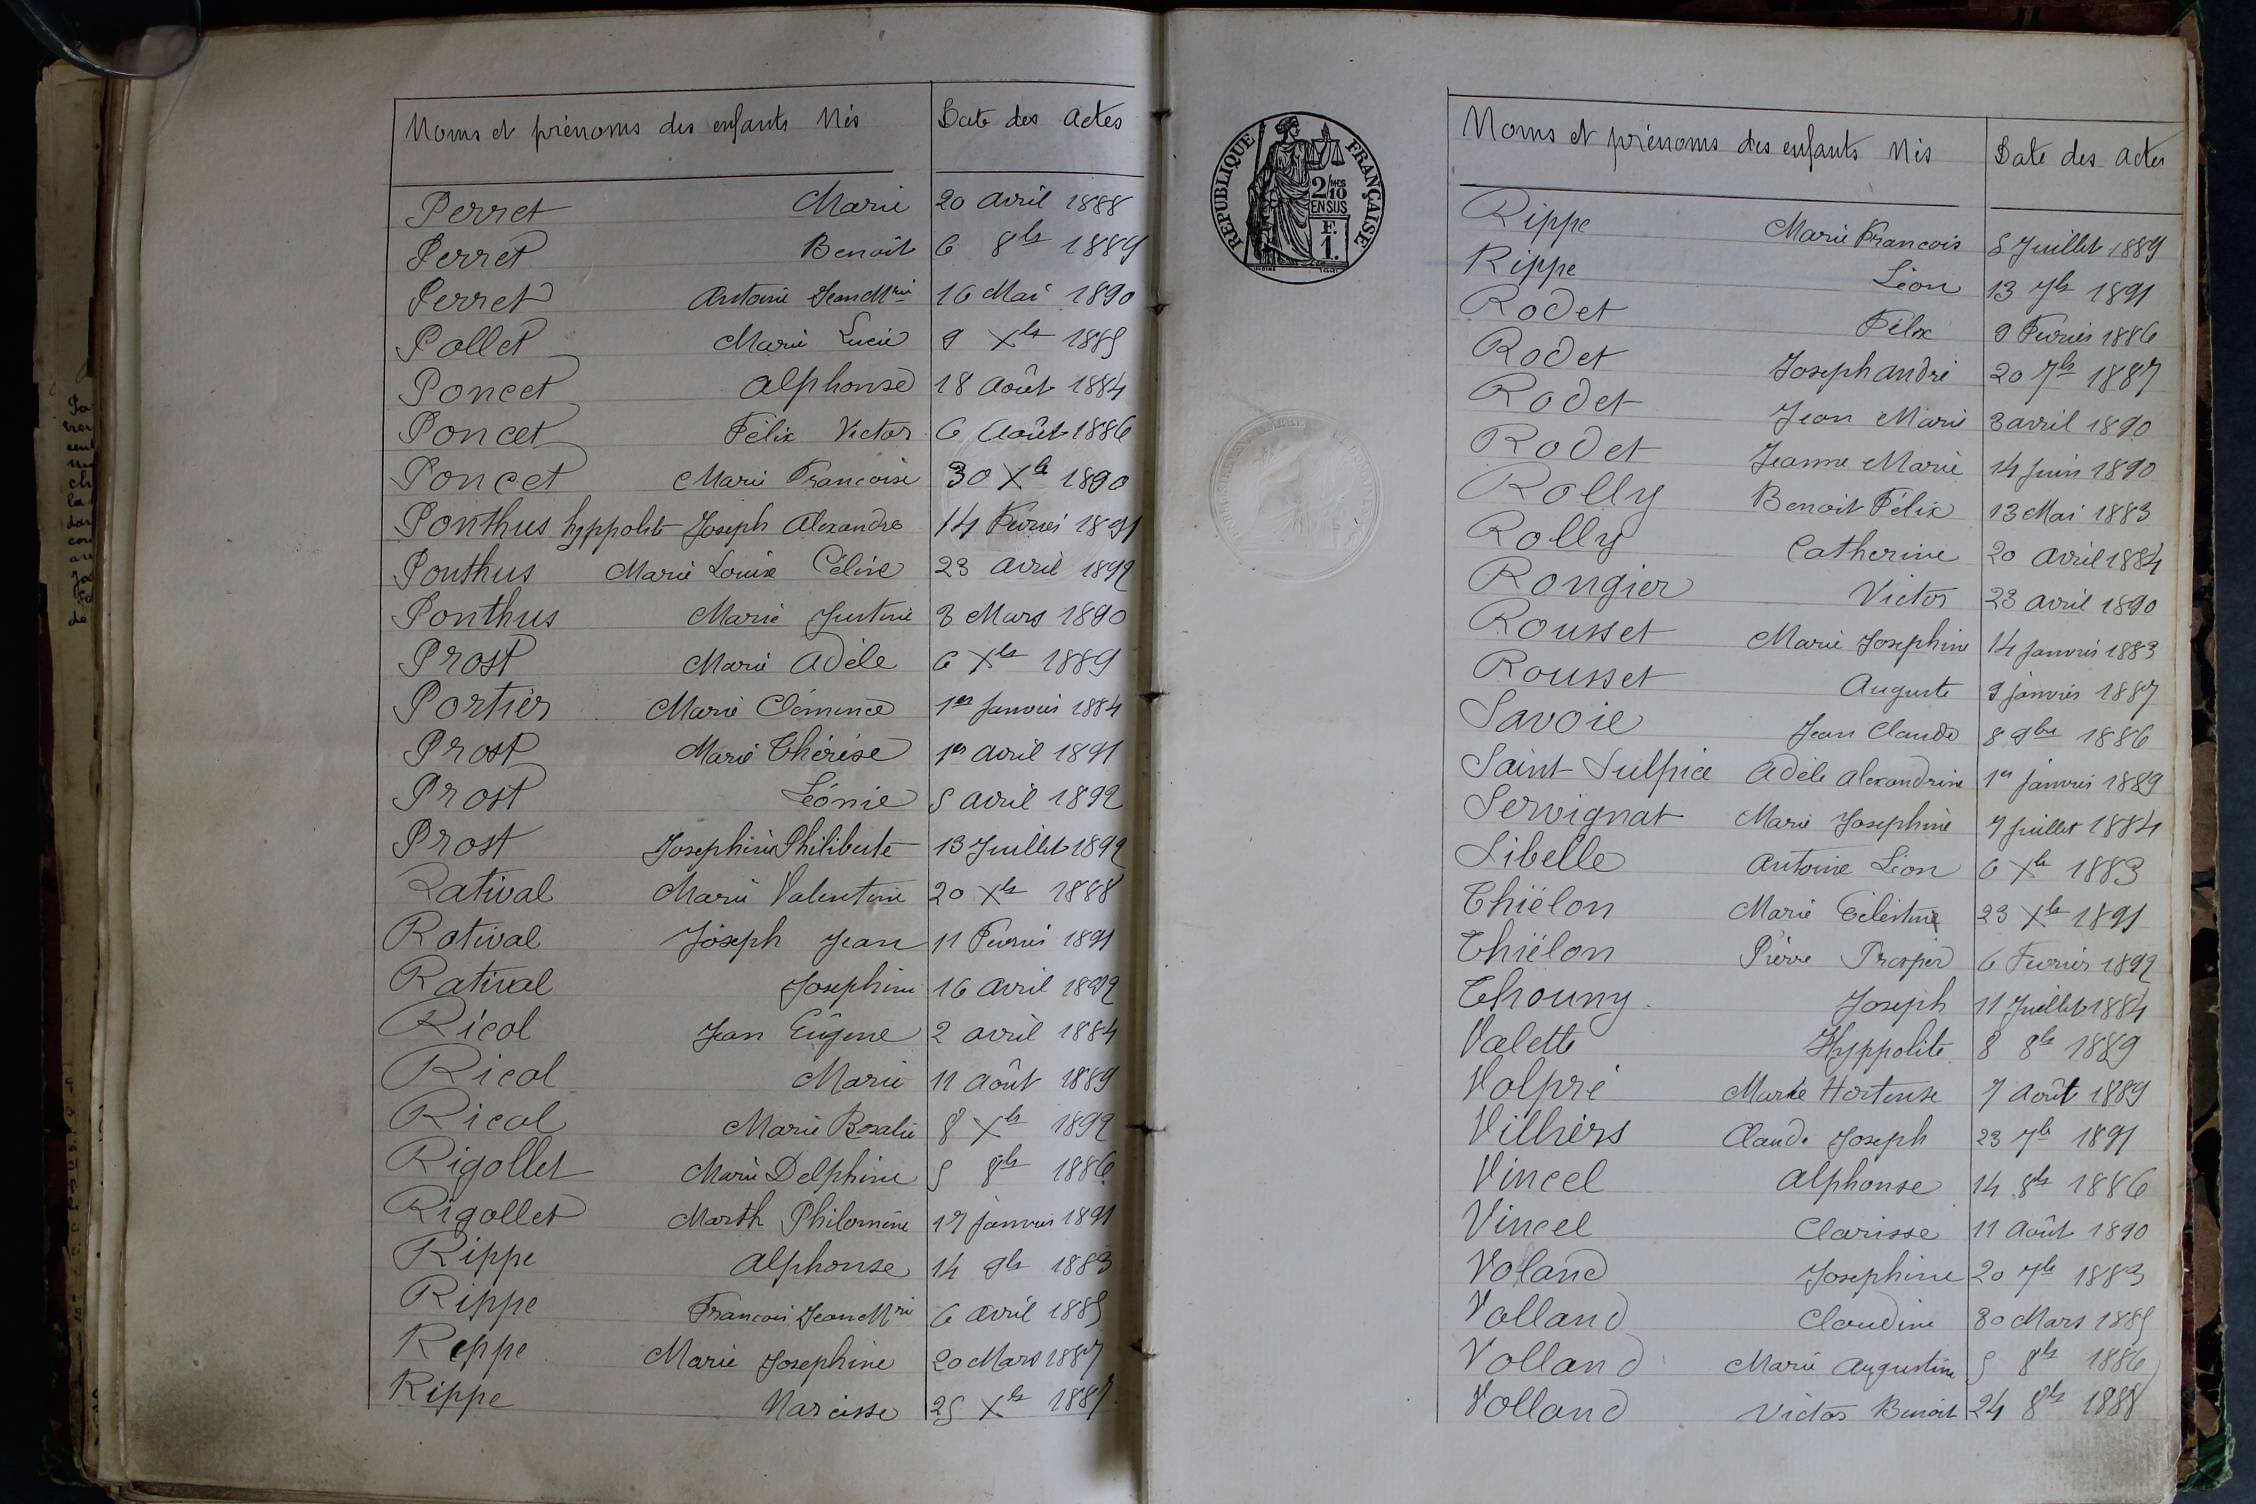 Noms et prénoms des enfants Nés Date des actes
Perret Marie 20 avril 1888
Perret Benoit 6 8bre 1889
Perret Antoine Jean Mrie 16 Mai 1890
Pollet Marie Lucie 9 Xbre 1885
Poncet Alphonse 18 Août 1884
Poncet Félix Victor 6 Août 1886
Poncet Marie Francoise 30 Xbre 1890
Ponthus hyppolite Joseph Alexandre 14 Fevrier 1891
Ponthus Marie Louise Céline 23 avril 1892
Ponthus Marie Justine 3 Mars 1890
Prost Marie Adèle 6 Xbre 1889
Portier Marie Clémence 1er Janvier 1884
Prost Marie Thérèse 1er avril 1891
Prost Léonie 5 avril 1892
Prost Josephine Philiberte 13 Juillet 1892
Ratival Marie Valentine 20 Xbre 1888
Rotival Joseph Jean 11 Fevrier 1891
Ratival Josephine 16 avril 1892
Ricol Jean Eugene 2 avril 1884
Ricol Marie 11 août 1889
Ricol Marie Rosalie 8 Xbre 1892
Rigollet Marie Delphine 5 8bre 1886
Rigollet Marthe Philomène 17 janvier 1891
Rippe Alphonse 14 9bre 1883
Rippe Francois Jean Mrie 6 avril 1885
Reppe Marie Josephine 20 Mars 1887
Rippe Narcisse 25 Xbre 1887
REPUBLIQUE FRANÇAISE
2/10 MES
EN SUS
F.
1.
Noms et prénoms des enfants Nés Date des actes
Rippe Marie Francois 5 Juillet 1889
Rippe Léon 13 7bre 1891
Rodet Félix 9 Fevrier 1886
Rodet Joseph andré 20 7bre 1887
Rodet Jean Marie 3 avril 1890
Rodet Jeanne Marie 14 Juin 1890
Rolly Benoit Félix 13 Mai 1883
Rolly Catherine 20 avril 1884
Rongier Victor 23 avril 1890
Rousset Marie Josephine 14 Janvier 1883
Rousset Auguste 9 janvier 1887
Savoie Jean Claude 8 9bre 1886
Saint-Sulpice Adèle Alexandrine 1er janvier 1889
Servignat Marie Josephine 7 Juillet 1884
Libelle Antoine Léon 6 Xbre 1883
Thiélon Marie Célestine 23 Xbre 1891
Thiélon Pierre Prosper 6 Fevrier 1892
Thouny Joseph 11 Juillet 1884
Valette Hyppolite 8 8bre 1889
Volpré Marie Hortense 7 Août 1889
Villiers Claude Joseph 23 7bre 1891
Vincel Alphonse 14 8bre 1886
Vincel Clarisse 11 Août 1890
Voland Josephine 20 7bre 1883
Volland Claudine 30 Mars 1885
Volland Marie Augustine 5 8bre 1886
Volland Victor Benoit 24 8bre 1888